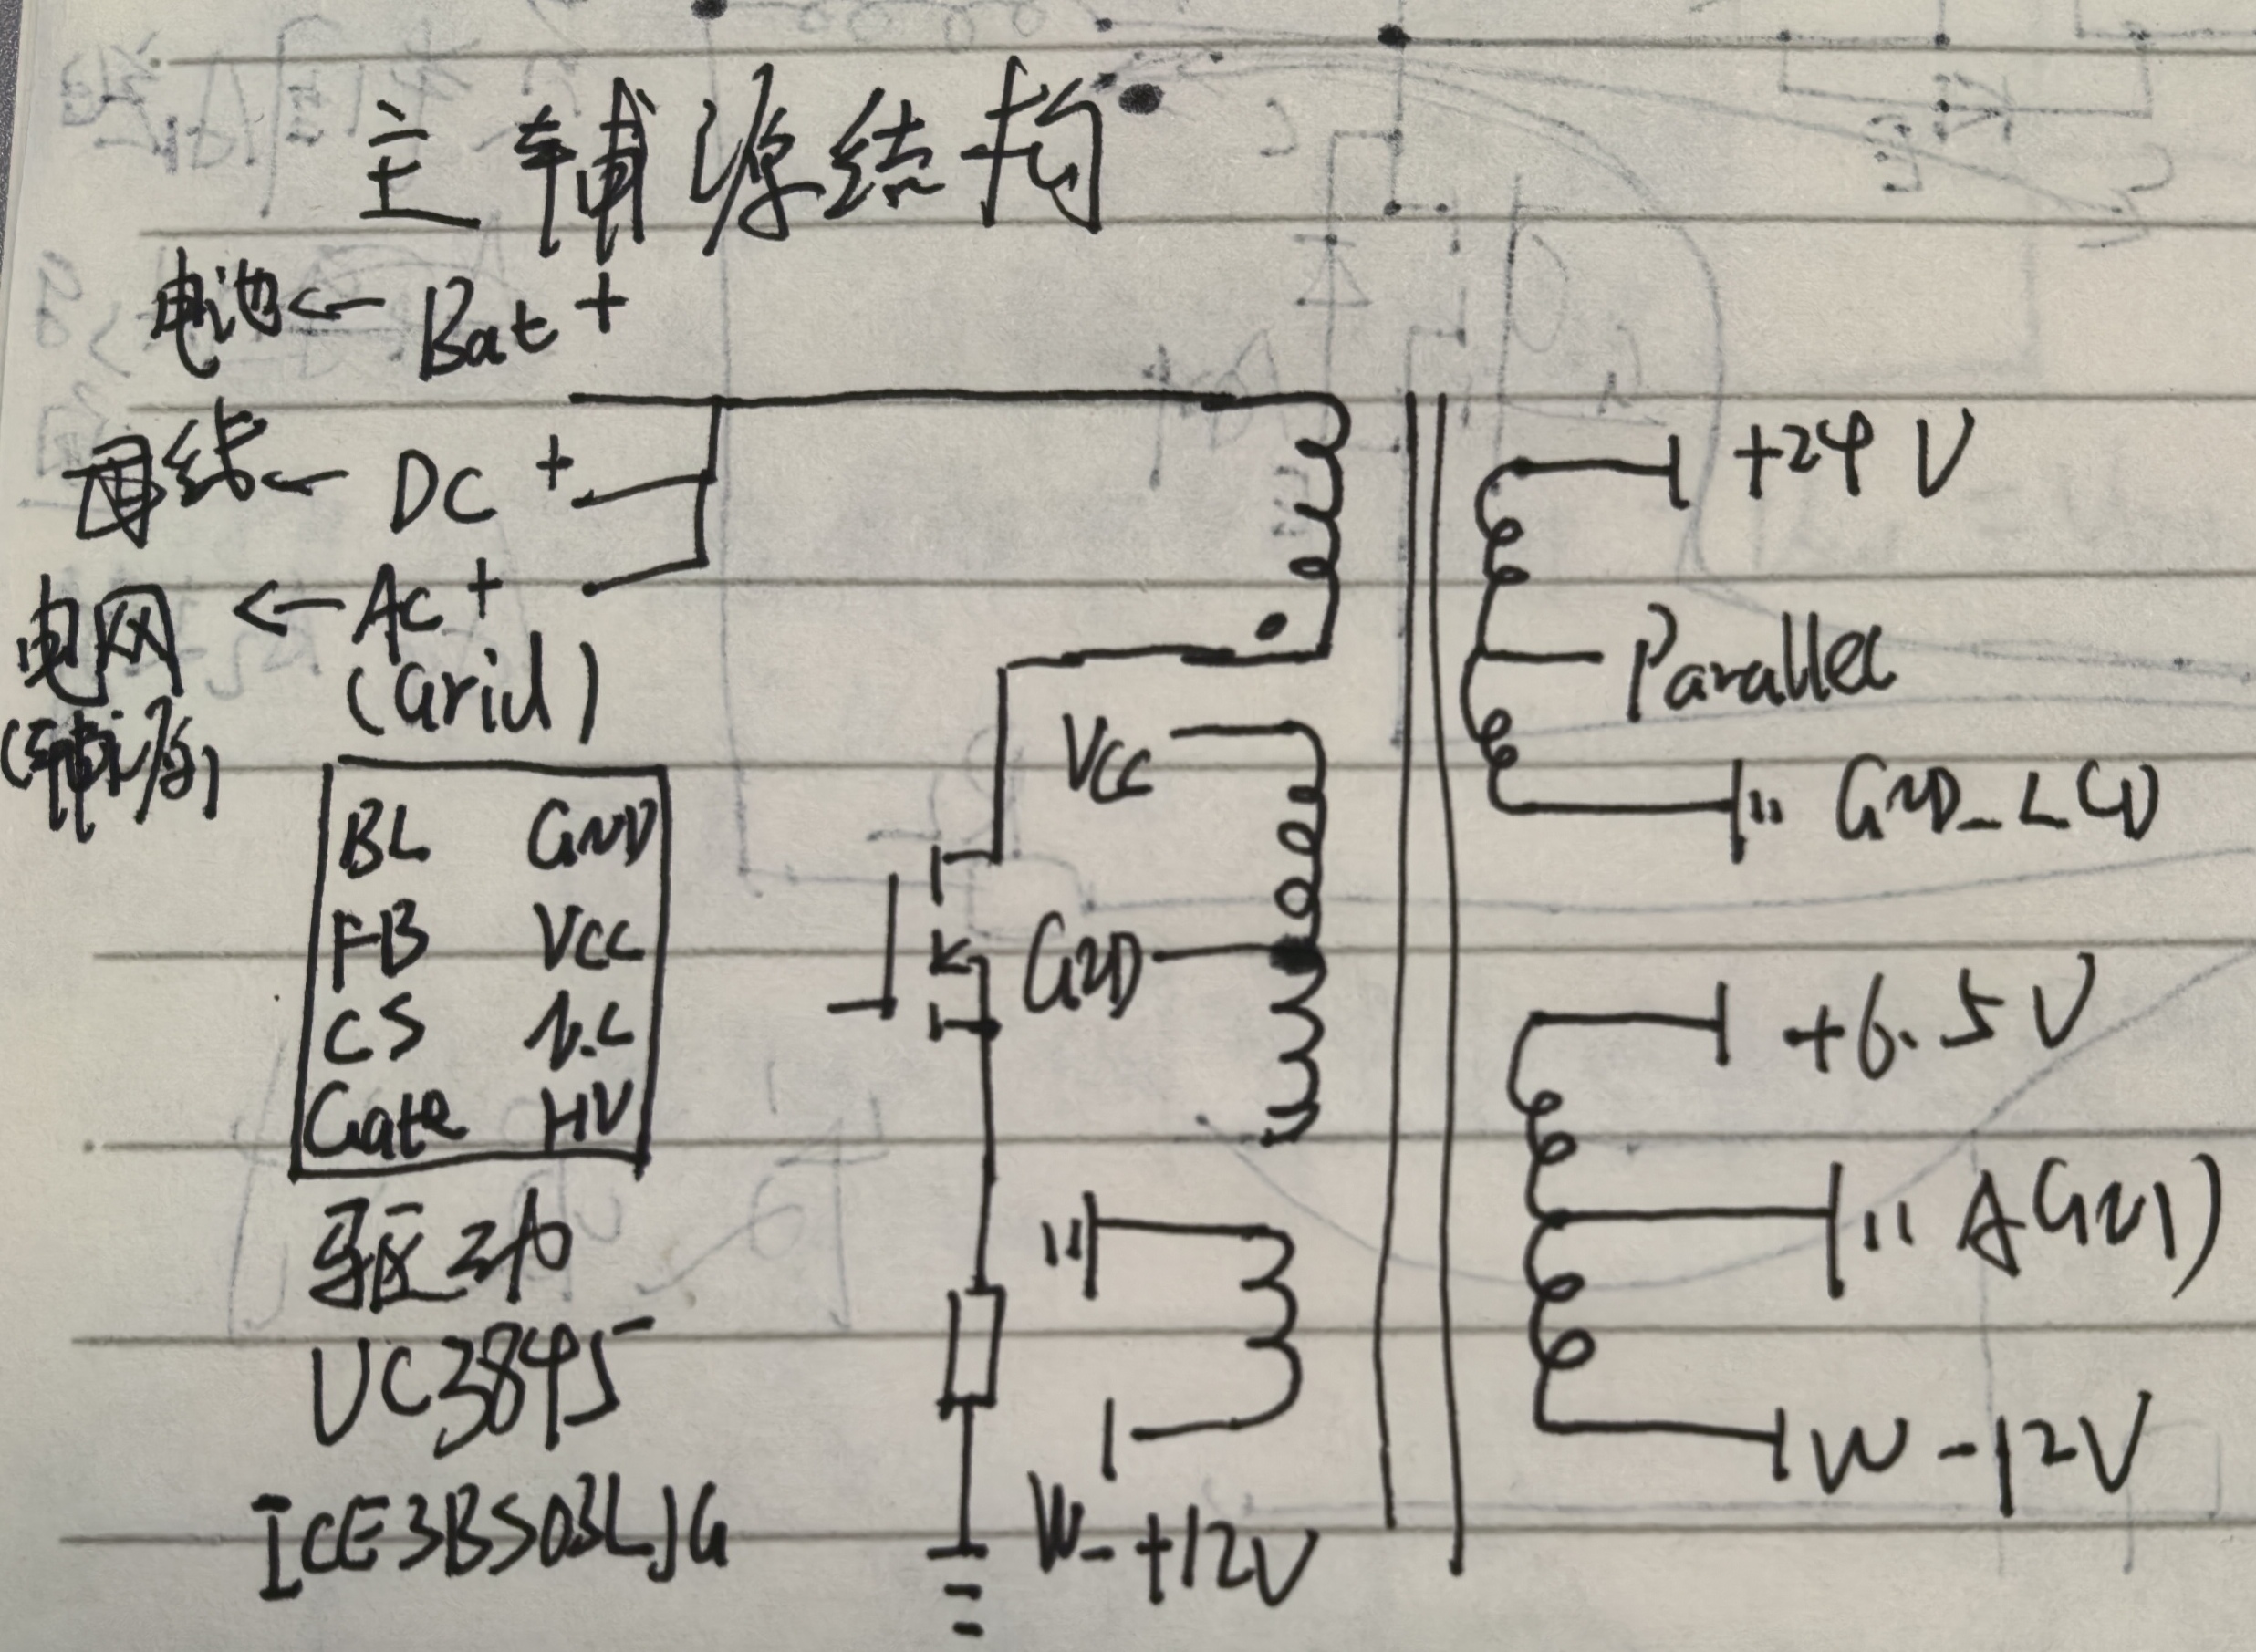 主辅源结构
电池 ← Bat +
母线 ← DC +
电网 ← AC +
(辅源) (Grid)
+24 V
Parallel
VCC
GND_LCD
BL GND
FB VCC
CS N.C
Gate HV
GND
+6.5V
AGND
驱动
UC3845
W -12V
ICE3BS03LJG
W-+12V